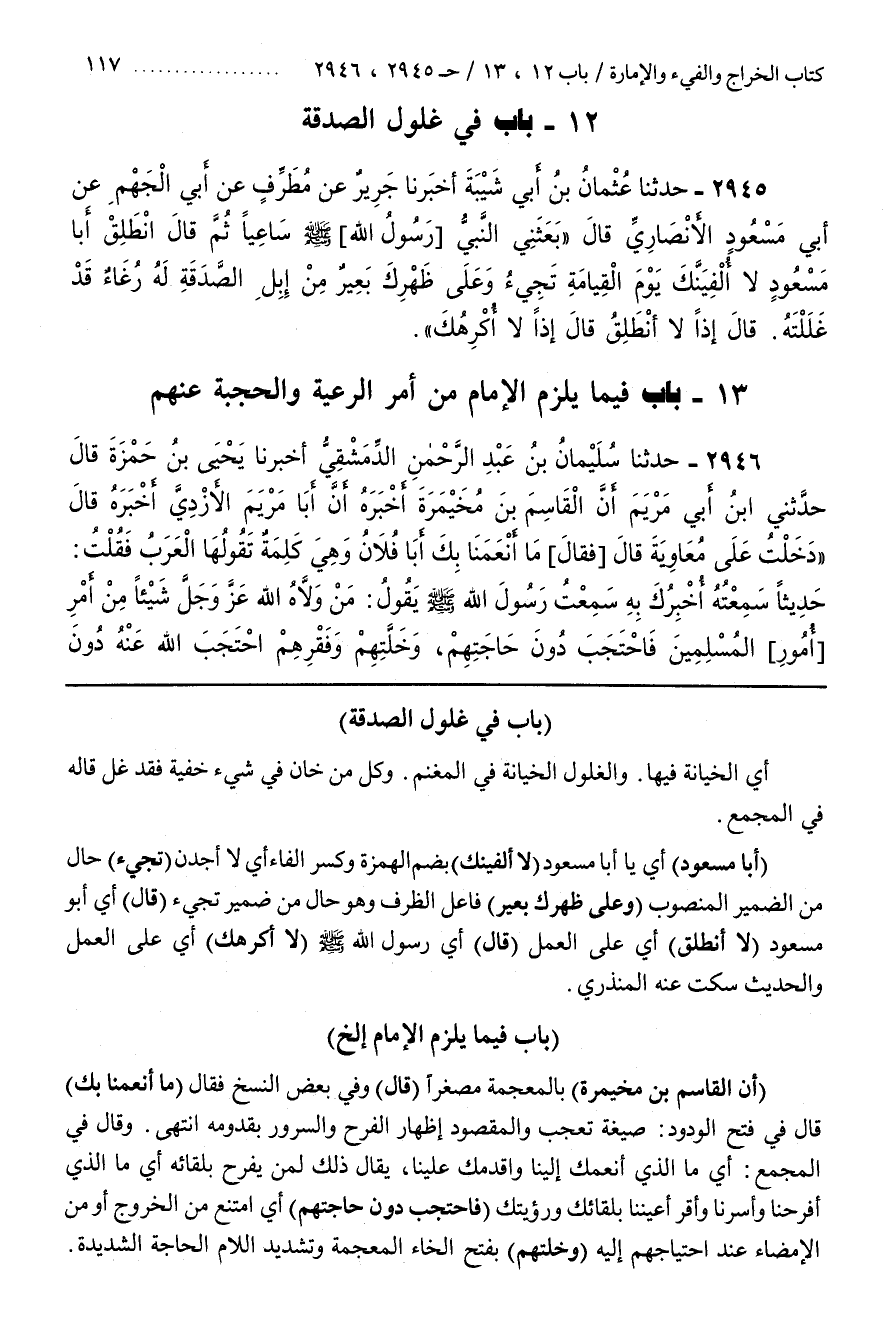 كتاب الخراج والفيء والإمارة / باب ١٢ ، ١٣ / حـ ٢٩٤٥ ، ٢٩٤٦ .................. ١١٧
١٢ ـ باب في غلول الصدقة
٢٩٤٥ ـ حدثنا عُثْمانُ بنُ أبي شَيْبَةَ أخبَرنا جَرِيرٌ عن مُطَرِّفٍ عن أبي الْجَهْمِ عن
أبي مَسْعُودٍ الأَنْصَارِيِّ قالَ «بَعَثَنِي النَّبيُّ [رَسُولُ الله] ﷺ سَاعِياً ثُمَّ قالَ انْطَلِقْ أَبا
مَسْعُودٍ لا أُلْفِيَنَّكَ يَوْمَ الْقِيامَةِ تَجِيءُ وَعَلَى ظَهْرِكَ بَعِيرٌ مِنْ إِبِلِ الصَّدَقَةِ لَهُ رُغَاءٌ قَدْ
غَلَلْتَهُ. قالَ إذاً لا أنْطَلِقُ قالَ إذاً لا أُكْرِهُكَ».
١٣ ـ باب فيما يلزم الإمام من أمر الرعية والحجبة عنهم
٢٩٤٦ ـ حدثنا سُلَيْمانُ بنُ عَبْدِ الرَّحْمٰنِ الدِّمَشْقِيُّ أخبرنا يَحْيَى بنُ حَمْزَةَ قالَ
حدَّثني ابنُ أبي مَرْيَمَ أنَّ الْقَاسِمَ بنَ مُخَيْمَرَةَ أخْبَرَهُ أنَّ أبَا مَرْيَمَ الأزْدِيَّ أخْبَرَهُ قالَ
«دَخَلْتُ عَلَى مُعَاوِيَةَ قالَ [فقالَ] مَا أنْعَمَنَا بِكَ أبَا فُلَانُ وَهِيَ كَلِمَةٌ تَقُولُهَا الْعَرَبُ فَقُلْتُ:
حَدِيثاً سَمِعْتُهُ أُخْبِرُكَ بِهِ سَمِعْتُ رَسُولَ الله ﷺ يَقُولُ: مَنْ وَلاَّهُ الله عَزَّ وَجَلَّ شَيْئاً مِنْ أمْرِ
[أُمُورِ] المُسْلِمِينَ فَاحْتَجَبَ دُونَ حَاجَتِهِمْ، وَخَلَّتِهِمْ وَفَقْرِهِمْ احْتَجَبَ الله عَنْهُ دُونَ
(باب في غلول الصدقة)
أي الخيانة فيها. والغلول الخيانة في المغنم. وكل من خان في شيء خفية فقد غل قاله
في المجمع.
(أبا مسعود) أي يا أبا مسعود (لا ألفينك) بضم الهمزة وكسر الفاء أي لا أجدن (تجيء) حال
من الضمير المنصوب (وعلى ظهرك بعير) فاعل الظرف وهو حال من ضمير تجيء (قال) أي أبو
مسعود (لا أنطلق) أي على العمل (قال) أي رسول الله ﷺ (لا أكرهك) أي على العمل
والحديث سكت عنه المنذري.
(باب فيما يلزم الإمام إلخ)
(أن القاسم بن مخيمرة) بالمعجمة مصغراً (قال) وفي بعض النسخ فقال (ما أنعمنا بك)
قال في فتح الودود: صيغة تعجب والمقصود إظهار الفرح والسرور بقدومه انتهى. وقال في
المجمع: أي ما الذي أنعمك إلينا واقدمك علينا، يقال ذلك لمن يفرح بلقائه أي ما الذي
أفرحنا وأسرنا وأقر أعيننا بلقائك ورؤيتك (فاحتجب دون حاجتهم) أي امتنع من الخروج أو من
الإمضاء عند احتياجهم إليه (وخلتهم) بفتح الخاء المعجمة وتشديد اللام الحاجة الشديدة.